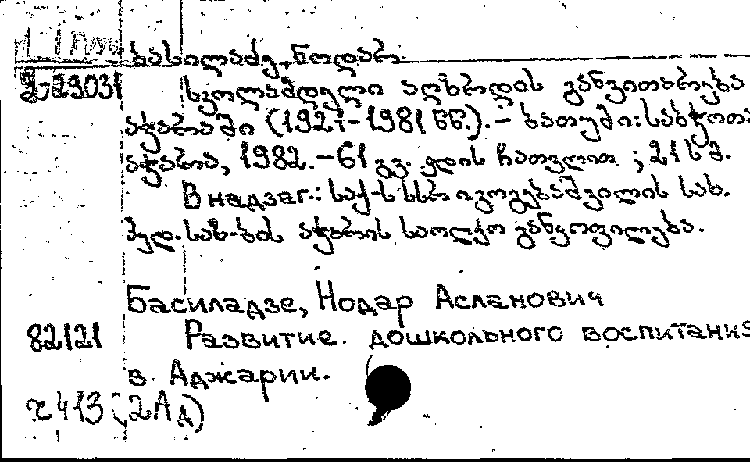 ბასილაძე, ნოდარ.
2-29031 სკოლამდელი აღზრდის განვითარება
აჭარაში (1921-1981 წწ.). – ბათუმი: საბჭოთა
აჭარა, 1982. – 61 გვ. ყდის ჩათვლით ; 21 სმ.
В надзаг.: საქ-ს სსრ
პედ. საზ-ბის აჭარის საოლქო განყოფილება.
Басиладзе, Нодар Асланович
82121 Развитие дошкольного воспитания
в Аджарии.
413 (2Ад)